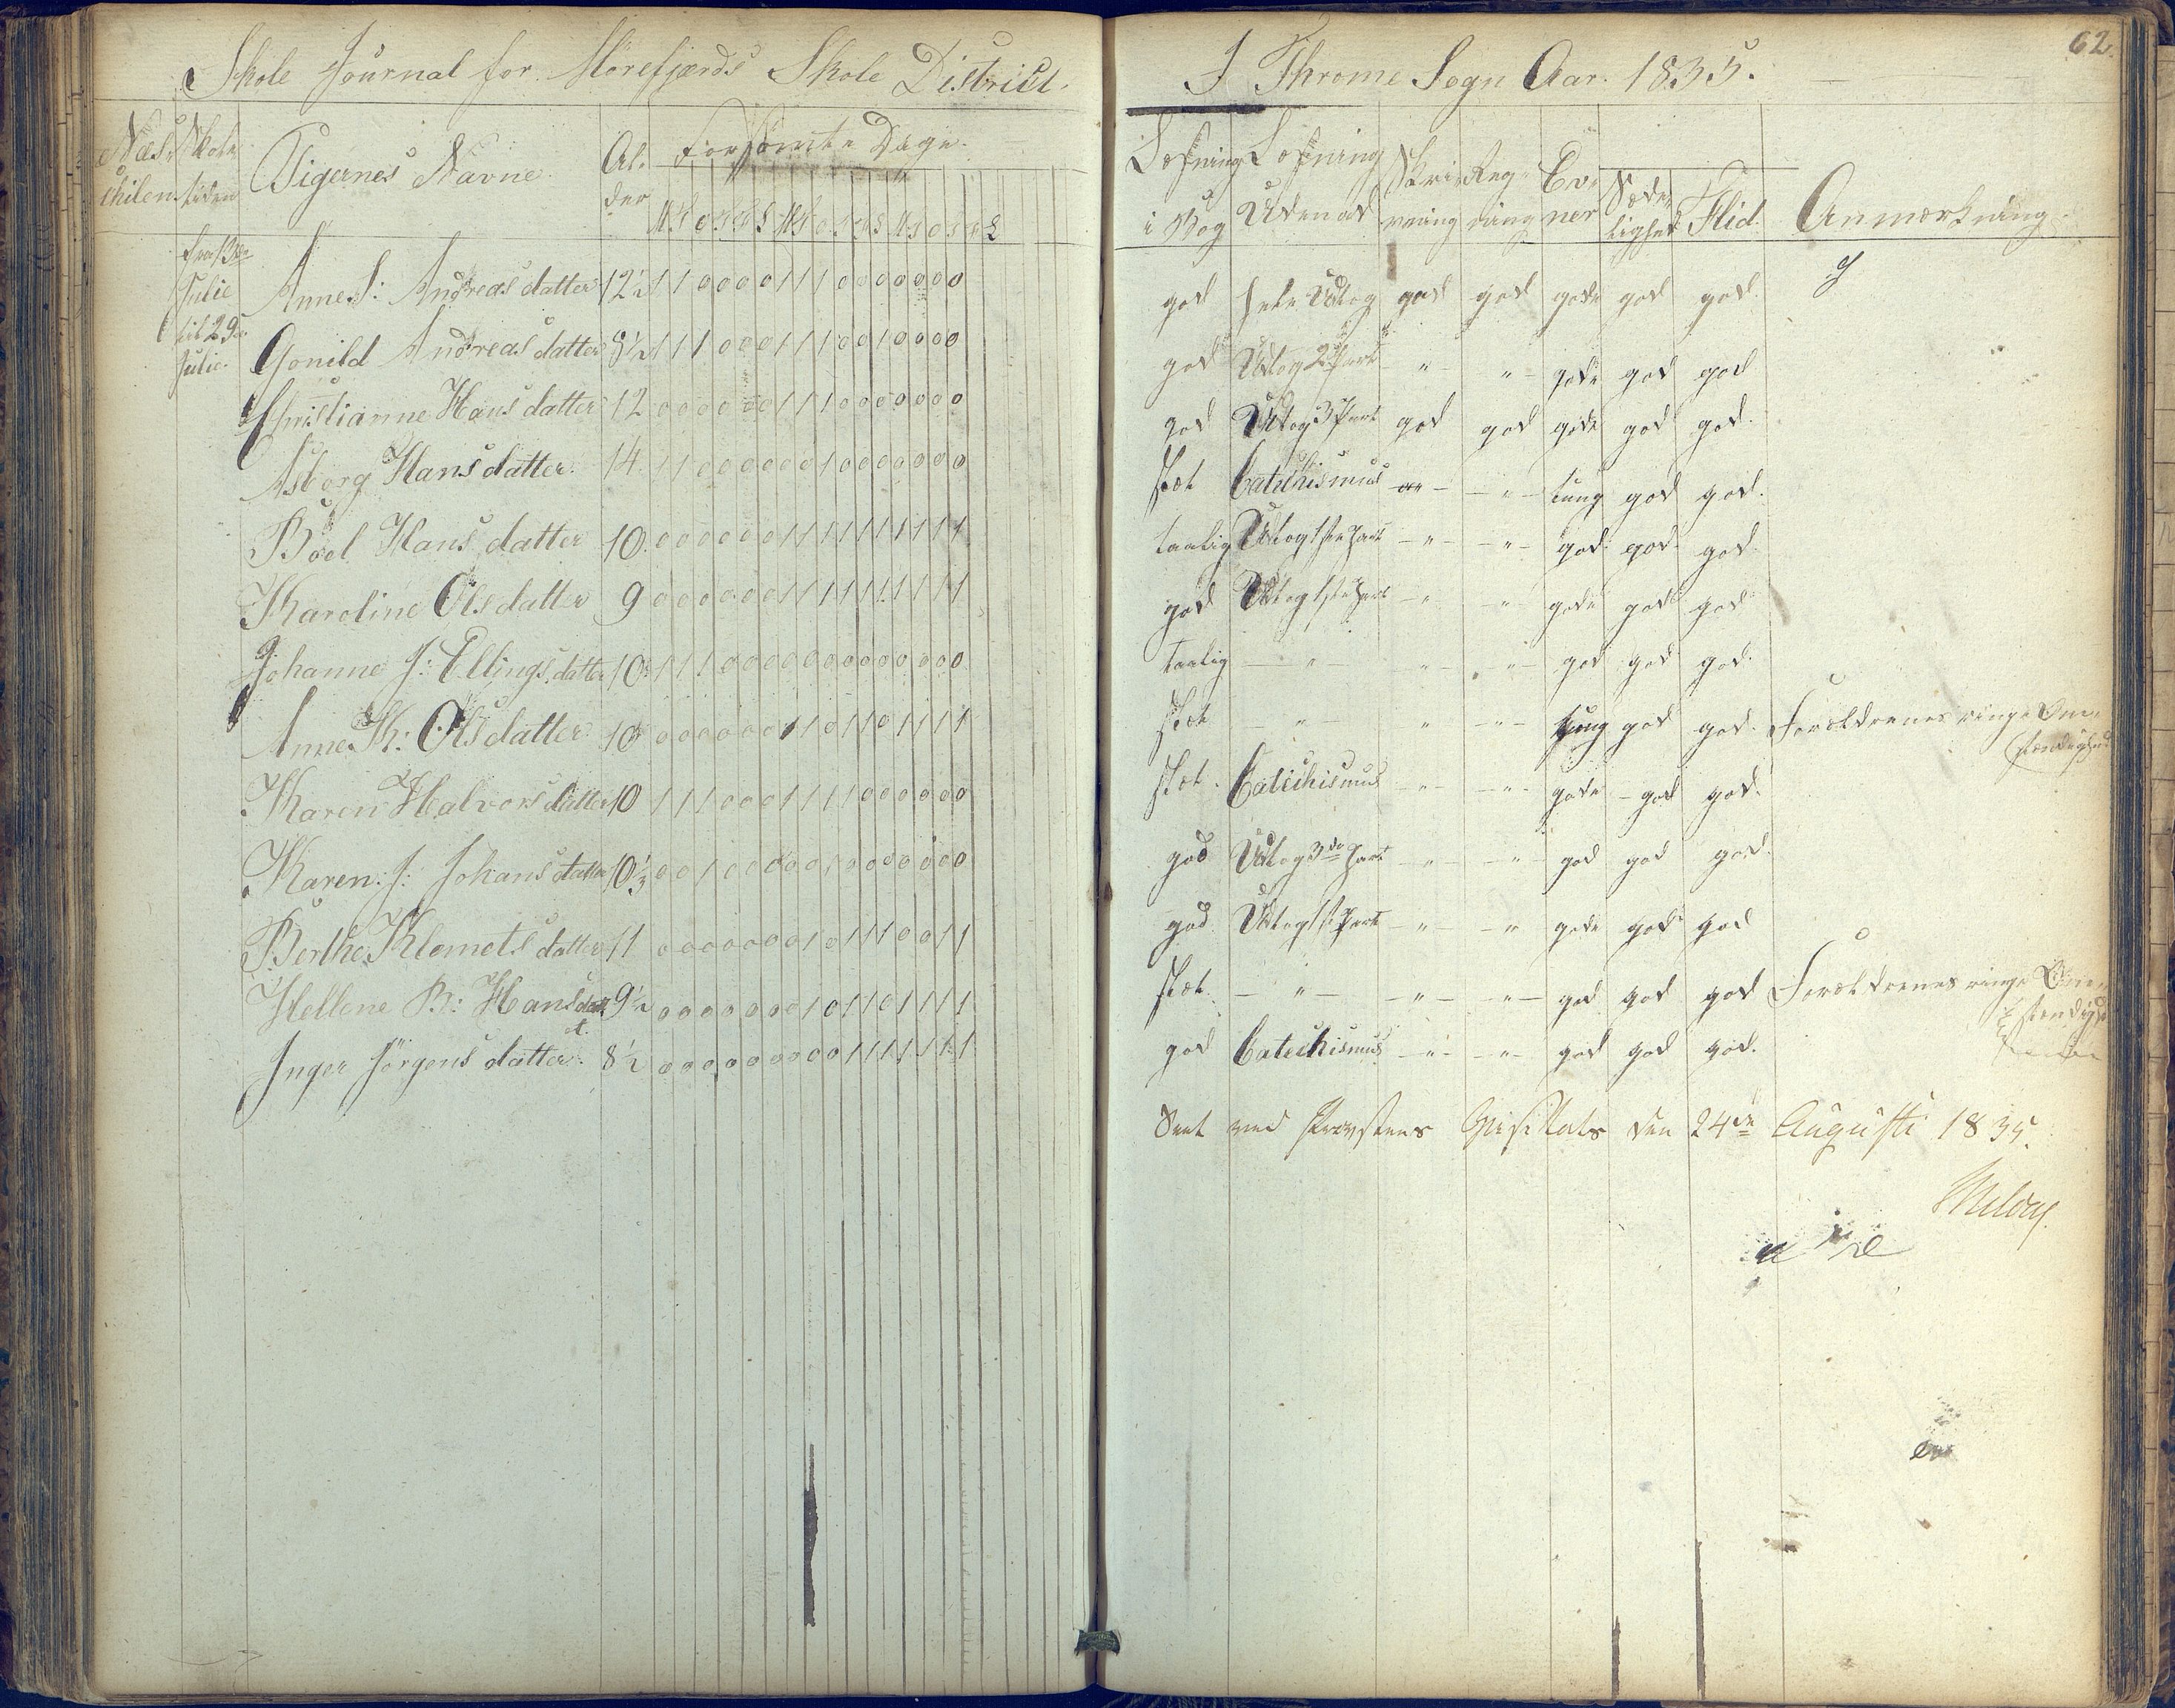 Skole Journal for Mörefjærds Skole District.
I Throme Sogn Aar. 1835.
62.
Skole tiden
Pigernes Navne.
Al. der
Forsömte Dage.
Læsning i Bog
Læsning Udenad
Skrivning
Regning
Evner
Sædelighed
Flid
Anmærkning.
fra 13de Julie til 29de Julie.
Anne S: Andreas datter 12½ 1 1 0 0 0 0 1 1 1 0 0 0 0 0 0 0 god hele Udtog god god gode god god.
Gonild Andreas datter 8½ 1 1 1 0 0 0 1 1 1 0 0 1 0 0 0 0 god Udtog 2 Part " " gode god god
Christianne Hans datter 12 0 0 0 0 0 0 1 1 1 0 0 0 0 0 0 0 god Udtog 3 Part god god gode god god.
Asborg Hans datter. 14 1 1 0 0 0 0 0 0 1 0 0 0 0 0 0 0 slet Catechismus " " tung god god.
Boel Hans datter 10. 0 0 0 0 0 0 1 1 1 1 1 1 1 1 1 1 taalig Udtog 1ste Part " " god god god.
Karoline Ols datter 9 0 0 0 0 0 0 1 1 1 1 1 1 1 1 1 1 god Udtog 1ste Part " " gode god god
Johanne J: Ellings datter 10 1 1 1 0 0 0 0 0 0 0 0 0 0 0 0 0 taalig " " " god god god.
Anne K: Ols datter 10 0 0 0 0 0 0 1 1 0 1 1 0 1 1 1 1 slet " " " tung god god. Forældrenes ringe Omstændighed
Karen Halvors datter 10 1 1 1 0 0 0 1 1 1 1 0 0 0 0 0 0 slet. Catechismus " " gode god god.
Karen: J: Johans datter 10⅓ 0 0 1 0 0 0 0 0 1 0 0 0 0 0 0 0 god Udtog 3de Part " " god god god.
Berthe Klemets datter 11 0 0 0 0 0 0 0 1 0 1 1 1 0 0 1 1 god Udtog 1ste Part " " gode god god
Hellene B: Hans dat. 9½ 0 0 0 0 0 0 0 1 0 1 1 0 1 1 1 1 slet. " " " god god god Forældrenes ringe Omstændighed
Inger Jörgens datter. 8½ 0 0 0 0 0 0 0 0 0 1 1 1 1 1 1 1 god Catechismus " " god god god.
Seet ved Provstens Visitats den 24de Augusti 1835.